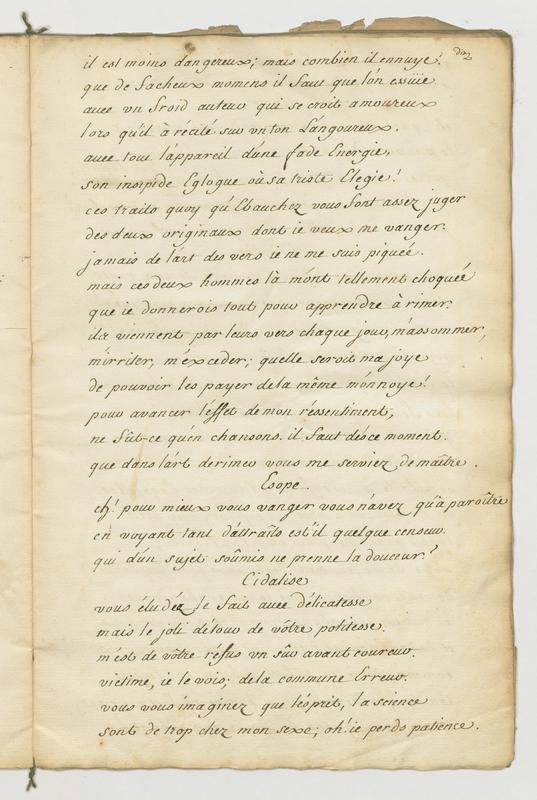 dix
il est moins dangereux; mais combien il ennuye!
que de facheux momens il faut que l'on essüie
avec vn froid auteur qui se croit amoureux
lors qu'il à récité sur vn ton Langoureux.
avec tout l'appareil d'une fade Energie,
son insipide Eglogue où sa triste Elegie!
ces traits quoy qu'Ebauchez vous font assez juger
des deux originaux dont ie veux me vanger.
jamais de l'art des vers ie ne me suis piqueé.
mais ces deux hommes là m'ont tellement choqueé
que ie donnerois tout pour apprendre à rimer.
ils viennent par leurs vers chaque jour, m'assommer,
m'irriter, m'exceder; quelle seroit ma joye
de pouvoir les payer de la même monnoye!
pour avancer l'effet de mon réssentiment,
ne fût-ce qu'en chansons. il faut dés ce moment.
que dans l'art de rimer vous me serviez de maître.
Esope.
eh! pour mieux vous vanger vous n'avez qu'à paroître
en voyant tant d'attraits est'il quelque censeur.
qui d'un sujet soûmis ne prenne la douceur?
Cidalise
vous éludéz le fait avec délicatesse
mais le joli détour de vôtre politesse.
m'est de vôtre réfus vn sûr avant coureur.
victime, ie le vois; de la commune Erreur.
vous vous imaginez que l'ésprit, la science
sont de trop chez mon sexe; oh! ie perds patience.